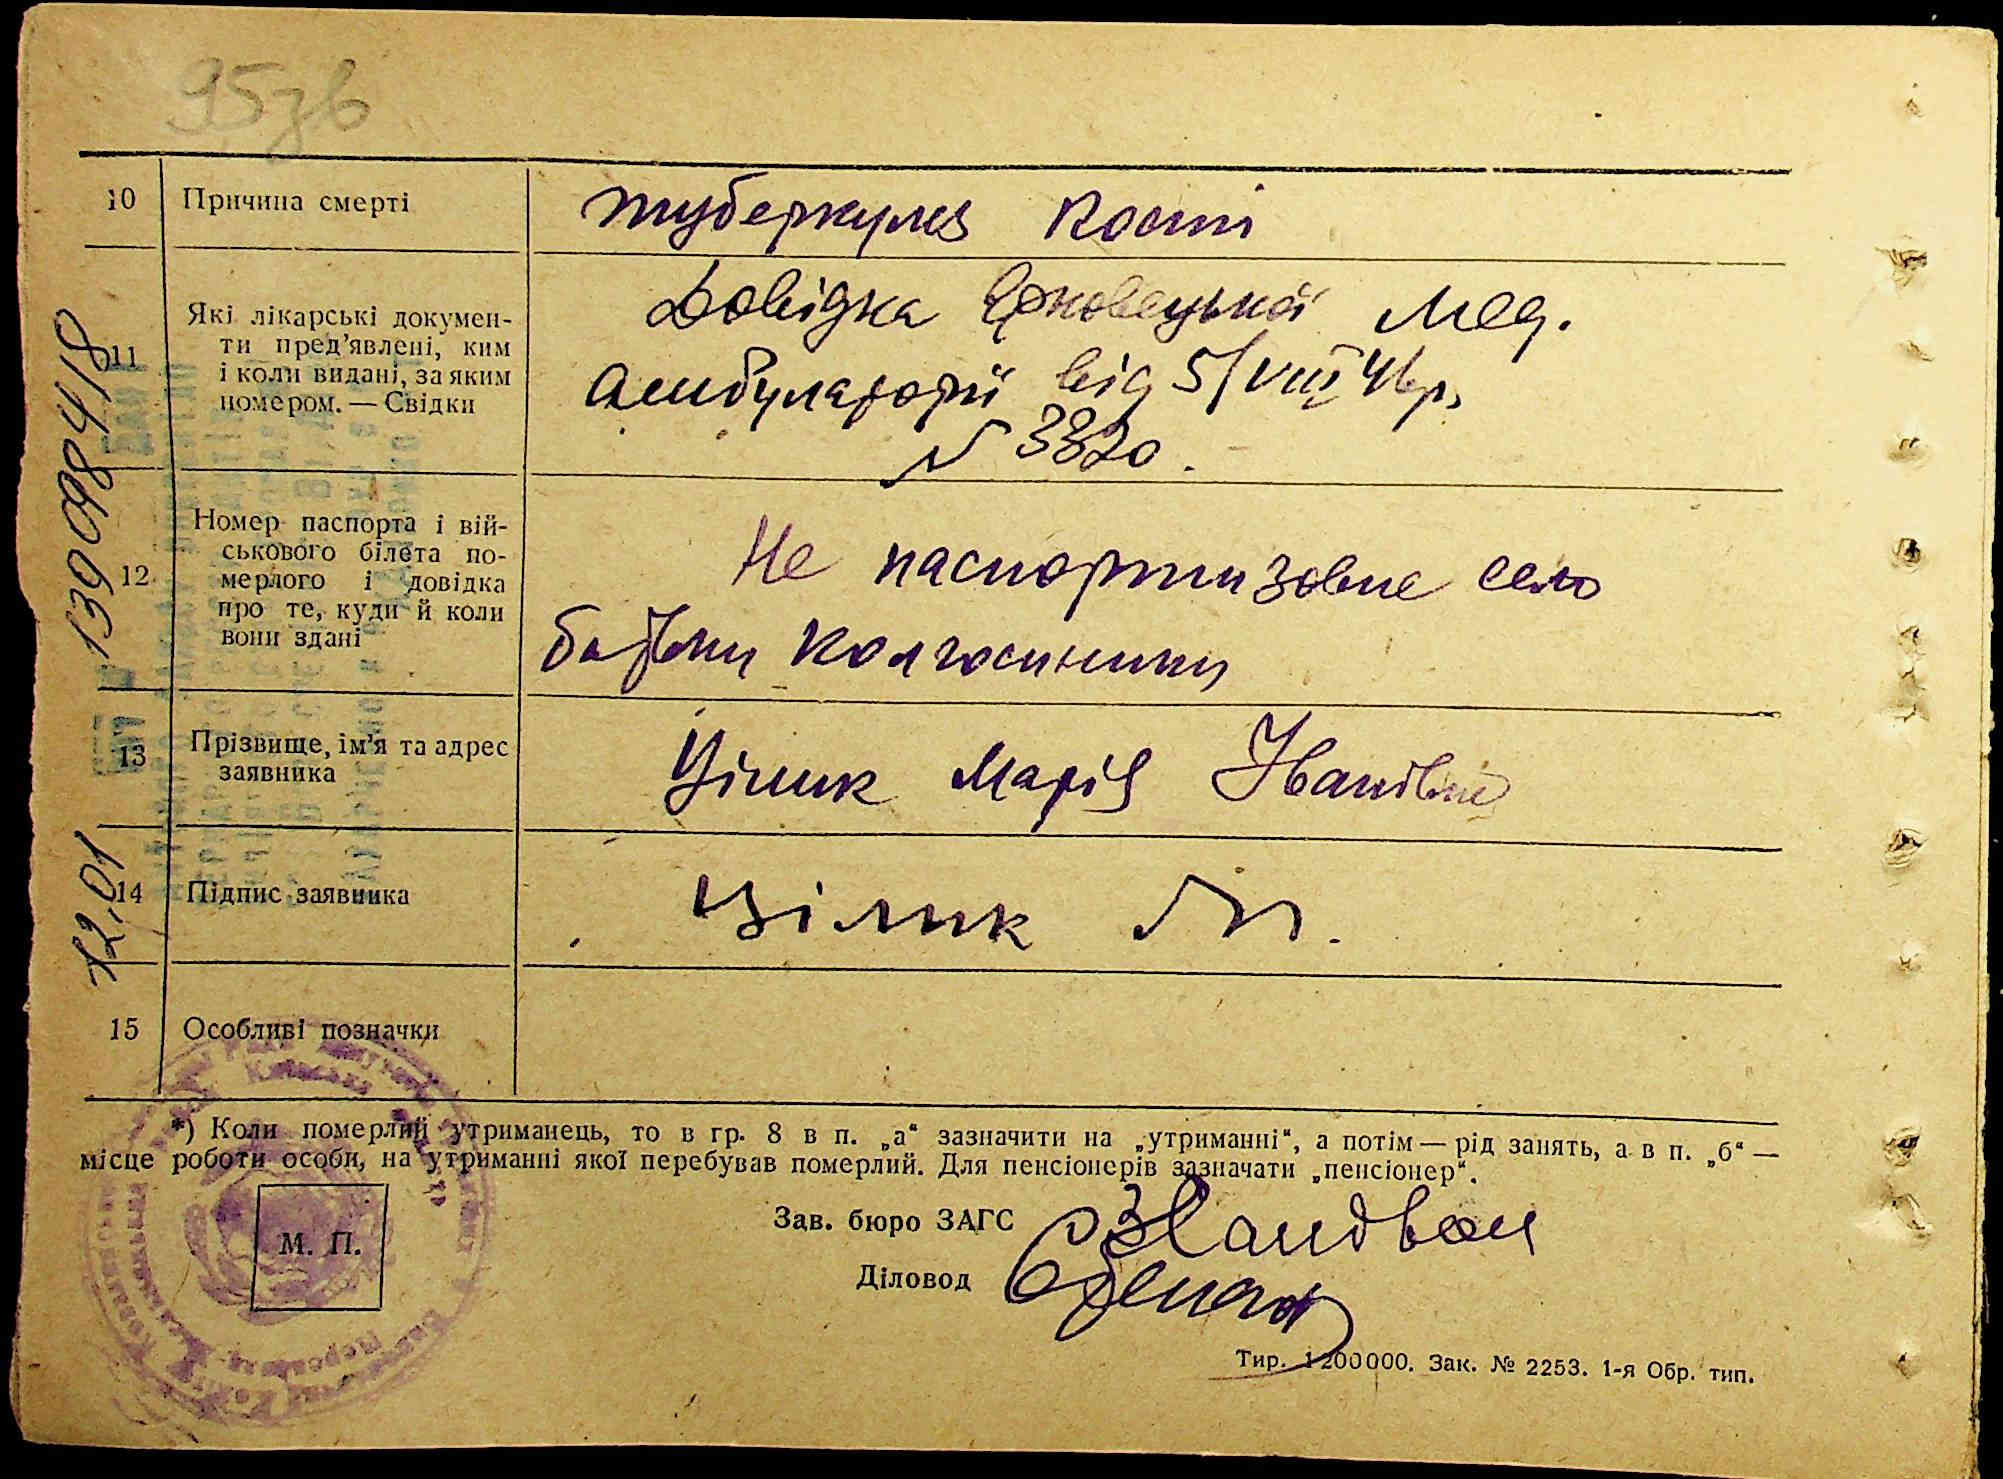 95зв
10 Причина смерті
туберкульз кості
11 Які лікарські докумен-
ти пред'явлені, ким
і коли видані, за яким
номером. — Свідки
Довідка мед.
амбулаторії від 5/VIII 46р.
N 3320.
12 Номер паспорта і вій-
ськового білета по-
мерлого і довідка
про те, куди й коли
вони здані
Не паспортизовне село
батьки колгоспники
13 Прізвище, ім'я та адрес
заявника
Цілик Марія Іванівна
14 Підпис заявника
Цілик М.
15 Особливі позначки
139 098418
12,01
*) Коли померлий утриманець, то в гр. 8 в п. „а“ зазначити на „утриманні“, а потім — рід занять, а в п. „б“ —
місце роботи особи, на утриманні якої перебував померлий. Для пенсіонерів зазначати „пенсіонер“.
М. П.
Зав. бюро ЗАГС
Діловод
Тир. 1200000. Зак. № 2253. 1-я Обр. тип.